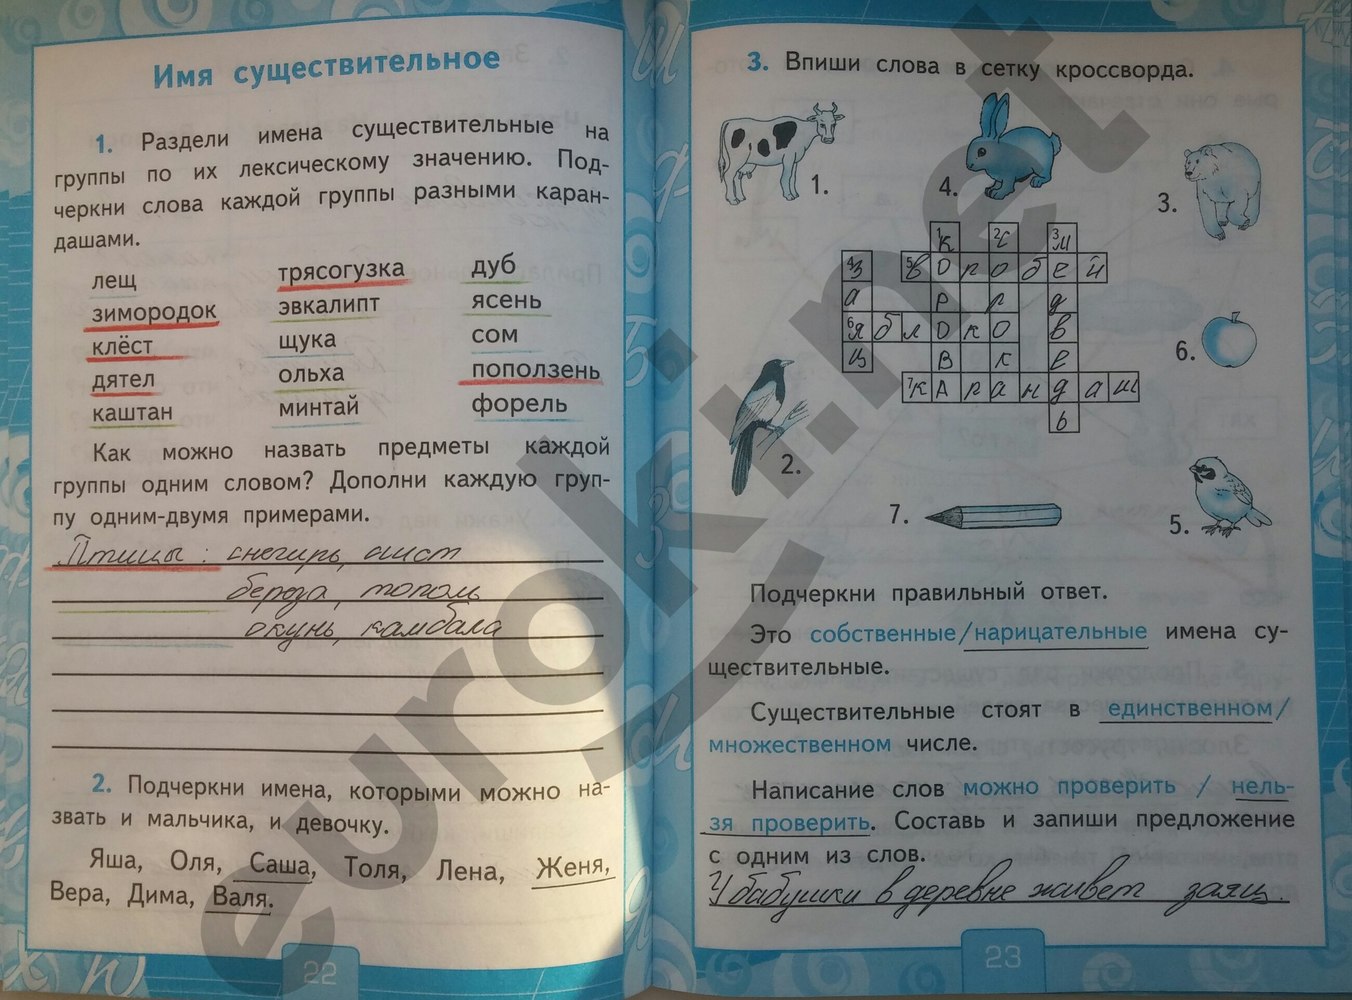 Имя существительное
1. Раздели имена существительные на
группы по их лексическому значению. Под-
черкни слова каждой группы разными каран-
дашами.
лещ трясогузка дуб
зимородок эвкалипт ясень
клёст щука сом
дятел ольха поползень
каштан минтай форель
Как можно назвать предметы каждой
группы одним словом? Дополни каждую груп-
пу одним-двумя примерами.
Птицы: снегирь, аист
береза, тополь
окунь, камбала
2. Подчеркни имена, которыми можно на-
звать и мальчика, и девочку.
Яша, Оля, Саша, Толя, Лена, Женя,
Вера, Дима, Валя.
22
3. Впиши слова в сетку кроссворда.
1.
4.
3.
1к 2с 3м
4з 5воробей
а р р д
6яблоко в
ц в к е
7карандаш
ь
6.
2.
7.
5.
Подчеркни правильный ответ.
Это собственные/нарицательные имена су-
ществительные.
Существительные стоят в единственном/
множественном числе.
Написание слов можно проверить / нель-
зя проверить. Составь и запиши предложение
с одним из слов.
У бабушки в деревне живет заяц.
23
euroki.net